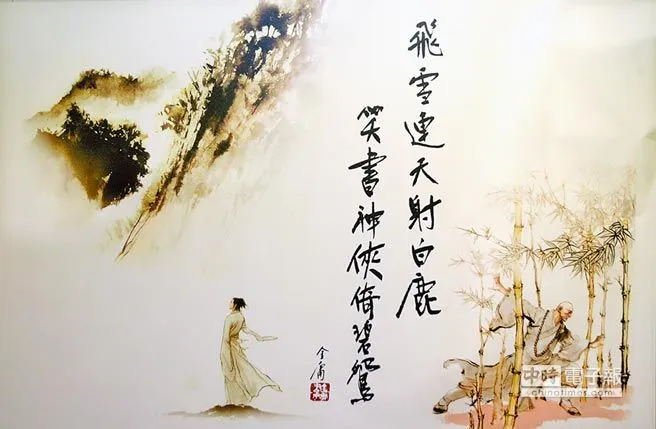 飛雪連天射白鹿
笑書神俠倚碧鴛
金庸
中時電子報
chinatimes.com